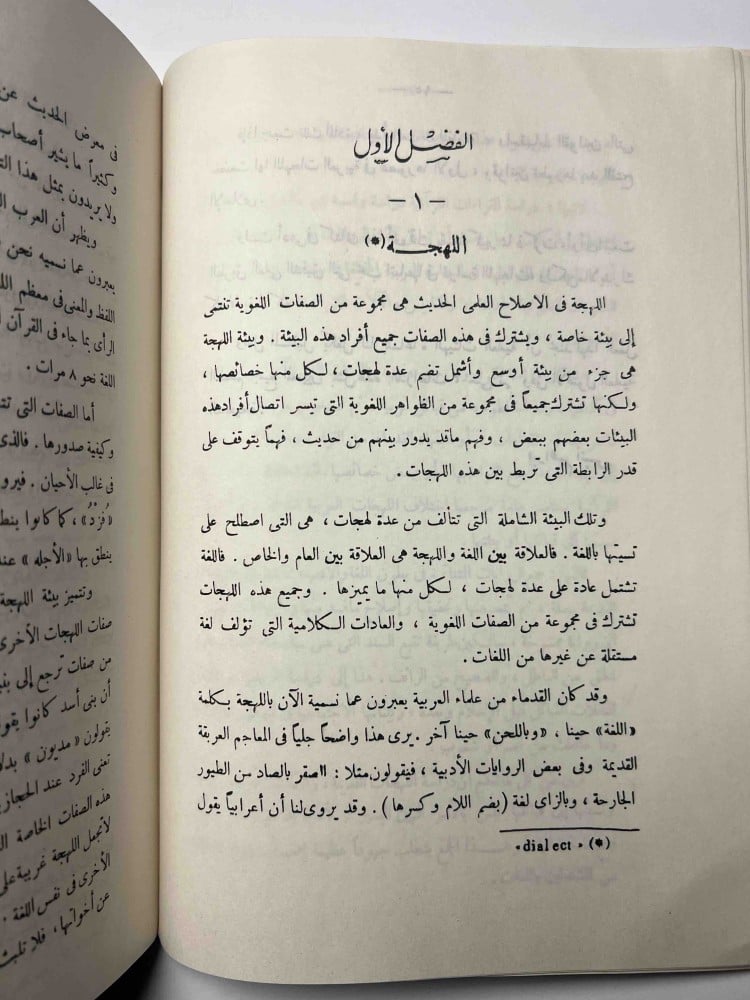 الفصل الأول
— ١ —
اللهجة (*)
اللهجة فى الاصلاح العلمى الحديث هى مجموعة من الصفات اللغوية تنتمى
إلى بيئة خاصة ، ويشترك فى هذه الصفات جميع أفراد هذه البيئة . وبيئة اللهجة
هى جزء من بيئة أوسع وأشمل تضم عدة لهجات ، لكل منها خصائصها ،
ولكنها تشترك جميعاً فى مجموعة من الظواهر اللغوية التى تيسر اتصال أفراد هذه
البيئات بعضهم ببعض ، وفهم ماقد يدور بينهم من حديث ، فهماً يتوقف على
قدر الرابطة التى تربط بين هذه اللهجات .
وتلك البيئة الشاملة التى تتألف من عدة لهجات ، هى التى اصطلح على
تسيتها باللغة . فالعلاقة بين اللغة واللهجة هى العلاقة بين العام والخاص . فاللغة
تشتمل عادة على عدة لهجات ، لكل منها ما يميزها . وجميع هذه اللهجات
تشترك فى مجموعة من الصفات اللغوية ، والعادات الكلامية التى تؤلف لغة
مستقلة عن غيرها من اللغات .
وقد كان القدماء من علماء العربية يعبرون عما نسمية الآن باللهجة بكلمة
«اللغة» حينا ، «وباللحن» حينا آخر . يرى هذا واضحاً جلياً فى المعاجم العربقة
القديمة وفى بعض الروايات الأدبية ، فيقولون مثلا : الصقر بالصاد من الطيور
الجارحة ، وبالزاى لغة (بضم اللام وكسرها) . وقد يروى لنا أن أعرابياً يقول
(*) «dialect»
فى معرض الحديث عن
وكثيراً ما يشير أصحاب
ولا يريدون بمثل هذا
ويظهر أن العرب
يعبرون عما نسميه نحن
اللفظ والمعنى فى معظم
الرأى بما جاء فى القرآن
اللغة نحو ٨ مرات .
أما الصفات التى
وكيفية صدورها . فالذى
فى غالب الأحيان . فيرو
«فُزْدُ» ، كما كانوا ينط
ينطق بها «الأجله» عند
وتتميز بيئة اللهجة
صفات اللهجات الأخرى
من صفات ترجع إلى
أن بنى أسد كانوا يقو
يقولون «مديون» بدلا
تعنى الفرد عند الحجاز
هذه الصفات الخاصة
لا تجعل اللهجة غريبة على
الأخرى فى نفس اللغة .
عن أخواتها ، فلا تلبث